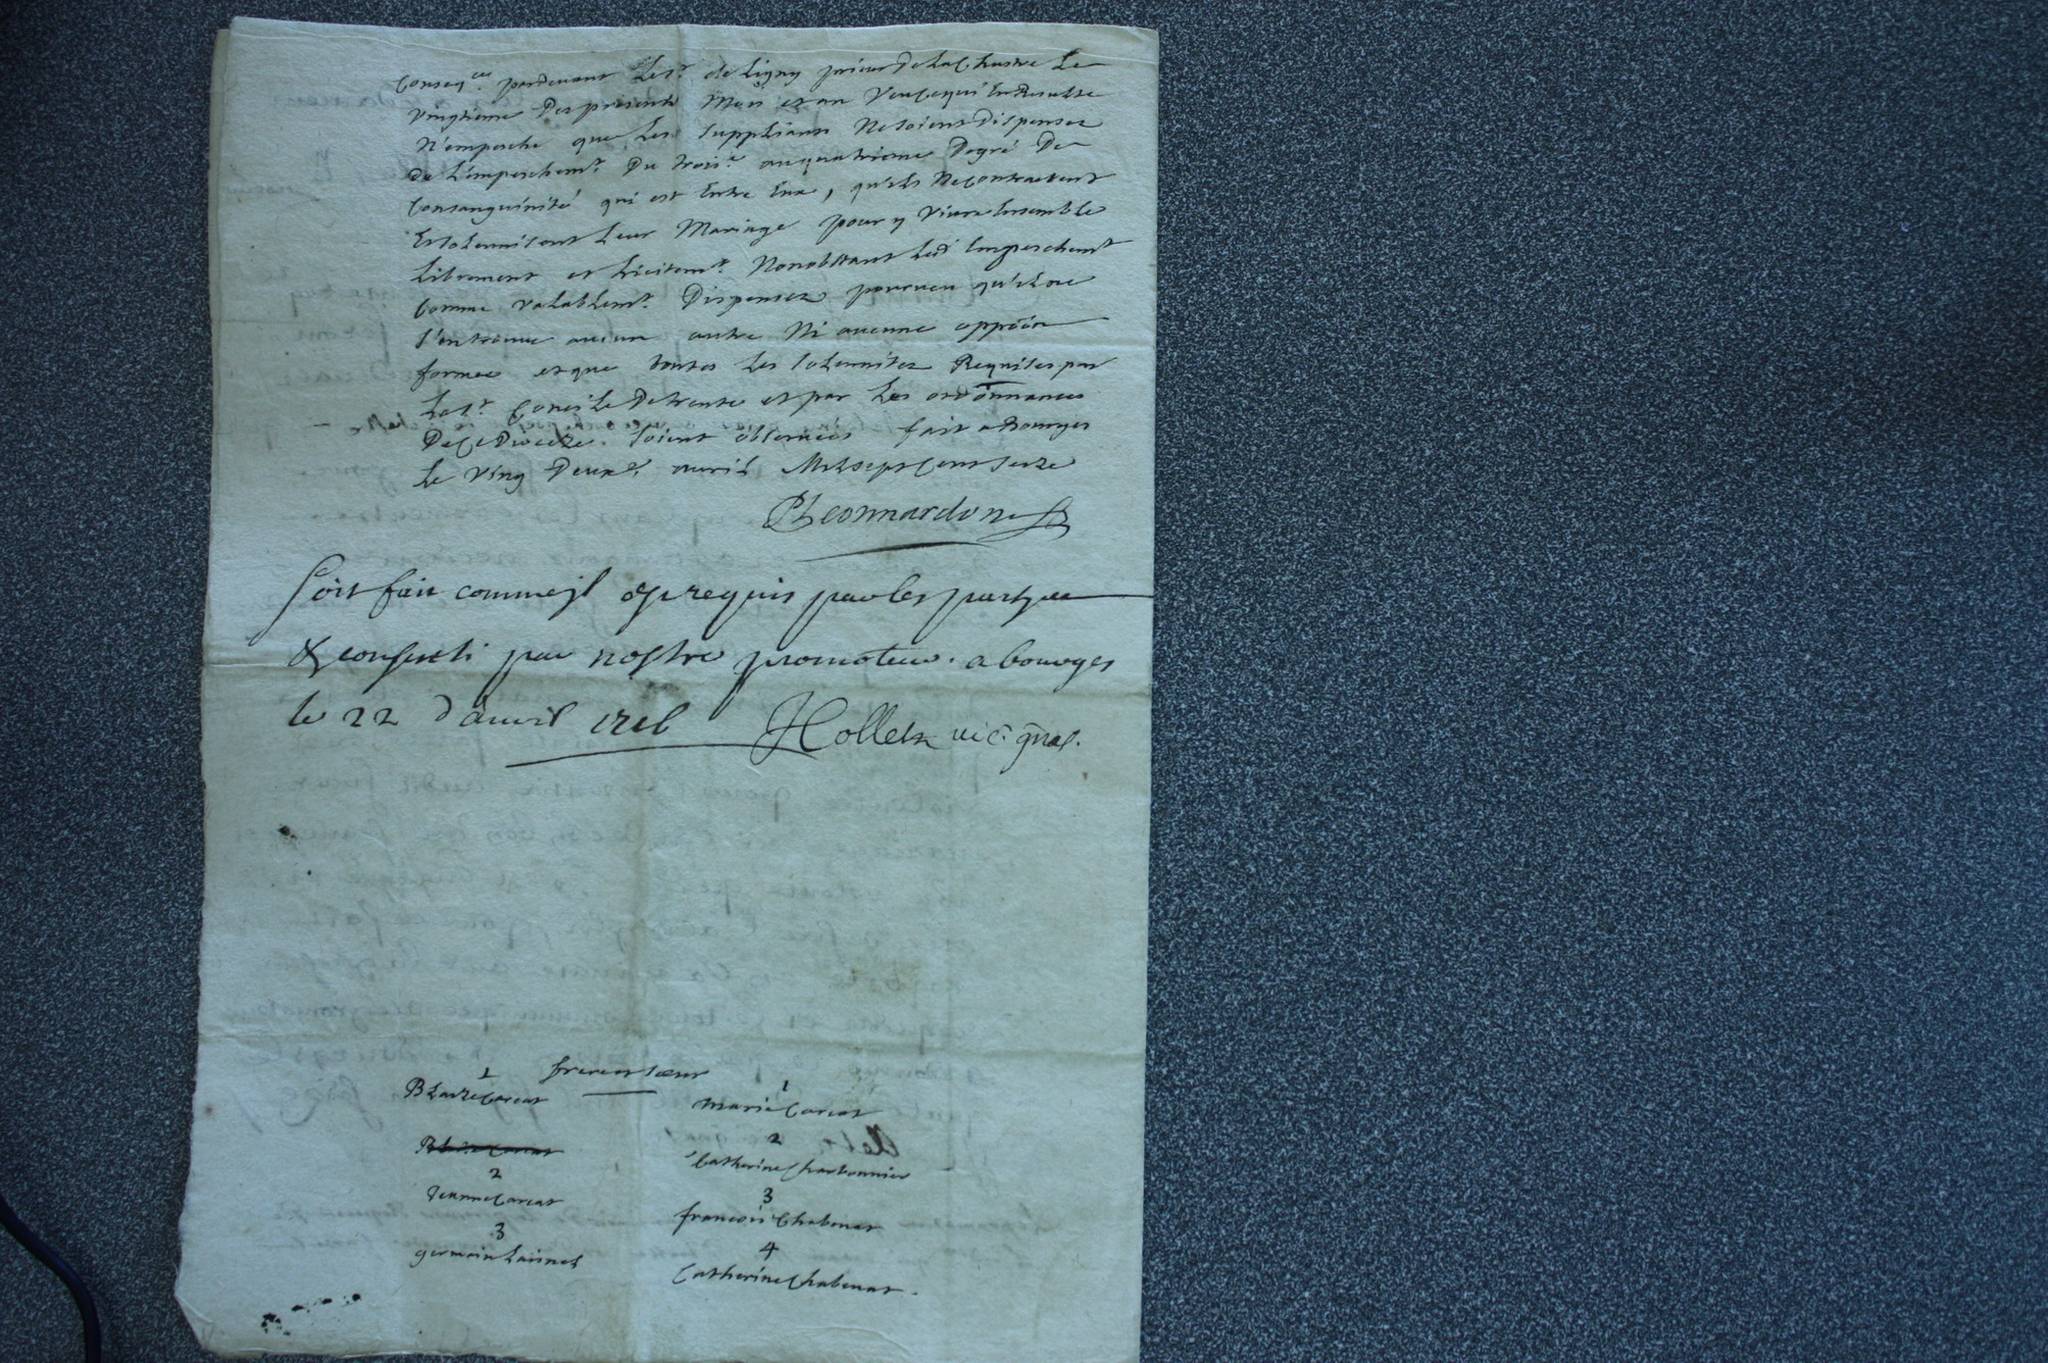 Conseq.ces pardevant Le sr. de Ligny prieur de La Chastre Le
Vingtieme Des presents Mois et an Veu Ce qui En Resulte
N'empesche que Les suppliants Ne soient Dispensez
de L'empeschemt. Du trois.e au quatrieme Degré De
Consanguinité qui est Entre Eux, qu'ils Ne Contractent
Et solennisent Leur Mariage pour y Vivre Ensemble
Librement et Licitemt. Nonobstant Led. Empeschemt
Comme Valablemt. Dispensez pourveu qu'il ne
s'en trouve aucun autre Ni aucune oppoon
formee et que toutes Les solennitez Requises par
Le st. Concile De trente et par Les ordonnances
De Ce Diocèze soient observées fait a Bourges
Le Ving Deuxe. avril Mil sept Cent seize
Leonnardon
soit fait comme il est requis par les parties
& consenti par nostre promoteur. a bourges
le 22 d'avril 1716 Hollet vic. gnal.
frere et soeur
1 1
Blaize Carcat Marie Carcat
2
Catherine Charbonnier
2
Jeanne Carcat
3
francois Chabenat
3
germain Laisnel
4
Catherine Chabenat.